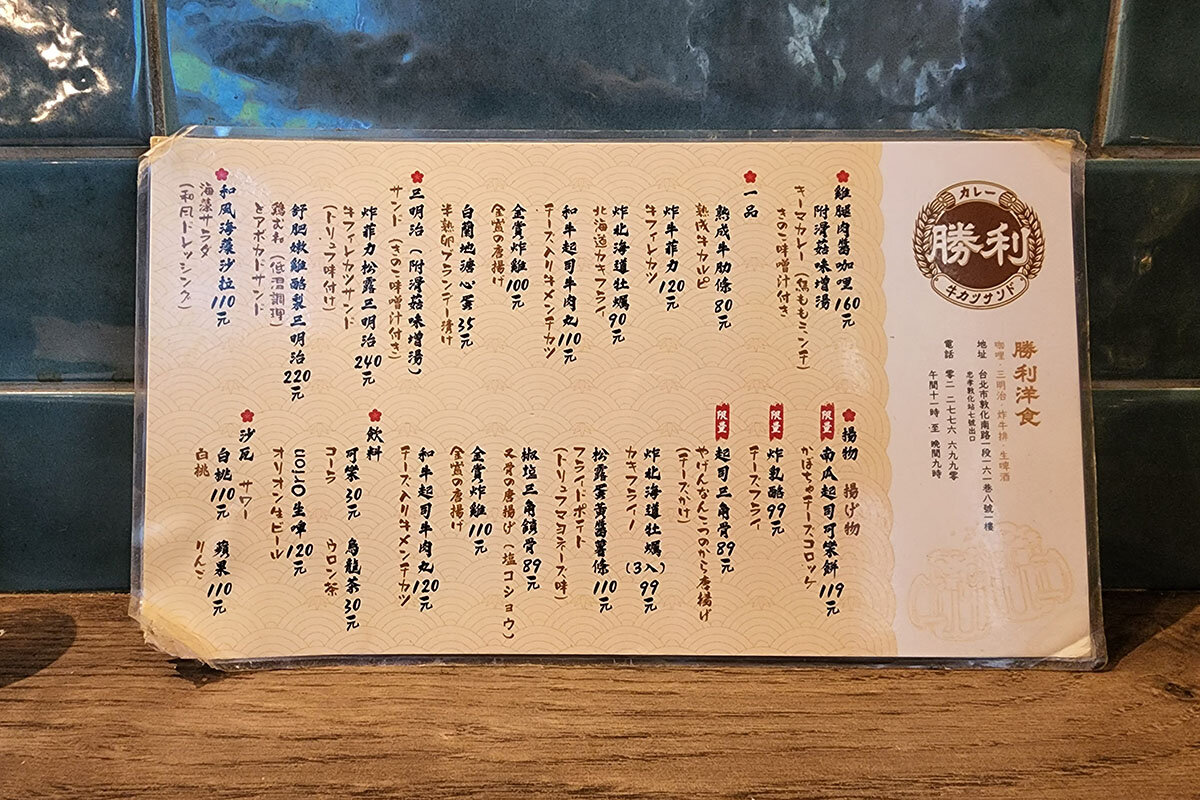 カレー
勝利
牛カツサンド
勝利洋食
咖哩·三明治·炸牛排·生啤酒
地址 台北市敦化南路一段一六一巷八號一樓
忠孝敦化站七號出口
電話 零二 二七七六 六九九零
午間十一時 至 晚間九時
雞腿肉醬咖哩160元
附滑菇味增湯
キーマカレー(鶏ももミンチ)
きのこ味噌汁付き
一品
熟成牛肋條 80元
熟成牛カルビ
炸牛菲力120元
牛フィレカツ
炸北海道牡蠣90元
北海道カキフライ
和牛起司牛肉丸110元
チーズ入り牛メンチカツ
金賞炸雞100元
金賞の唐揚げ
白蘭地溏心蛋35元
半熟卵ブランデー漬け
三明治(附滑菇味增湯)
サンド(きのこ味噌汁付き)
炸菲力松露三明治 240元
牛フィレカツサンド
(トリュフ味付け)
舒肥嫩雞酪梨三明治220元
鶏むね(低温調理)
とアボカドサンド
和風海藻沙拉110元
海藻サラダ
(和風ドレッシング)
揚物 揚げ物
限量 南瓜起司可樂餅119元
かぼちゃチーズコロッケ
限量 炸乳酪99元
チーズフライ
限量 起司三角骨89元
やげんなんこつのから唐揚げ
(チーズかけ)
炸北海道牡蠣(3入)99元
カキフライー
松露蛋黃醬薯條110元
フライドポテト
(トリュフマヨネーズ味)
椒塩三角軟骨89元
叉骨の唐揚げ(塩コショウ)
金賞炸雞110元
金賞の唐揚げ
和牛起司牛肉丸120元
チーズ入り牛メンチカツ
飲料
可樂30元 烏龍茶30元
コーラ ウロン茶
Orion生啤120元
オリオン生ビール
沙瓦 サワー
白桃110元 蘋果110元
白桃 りんご